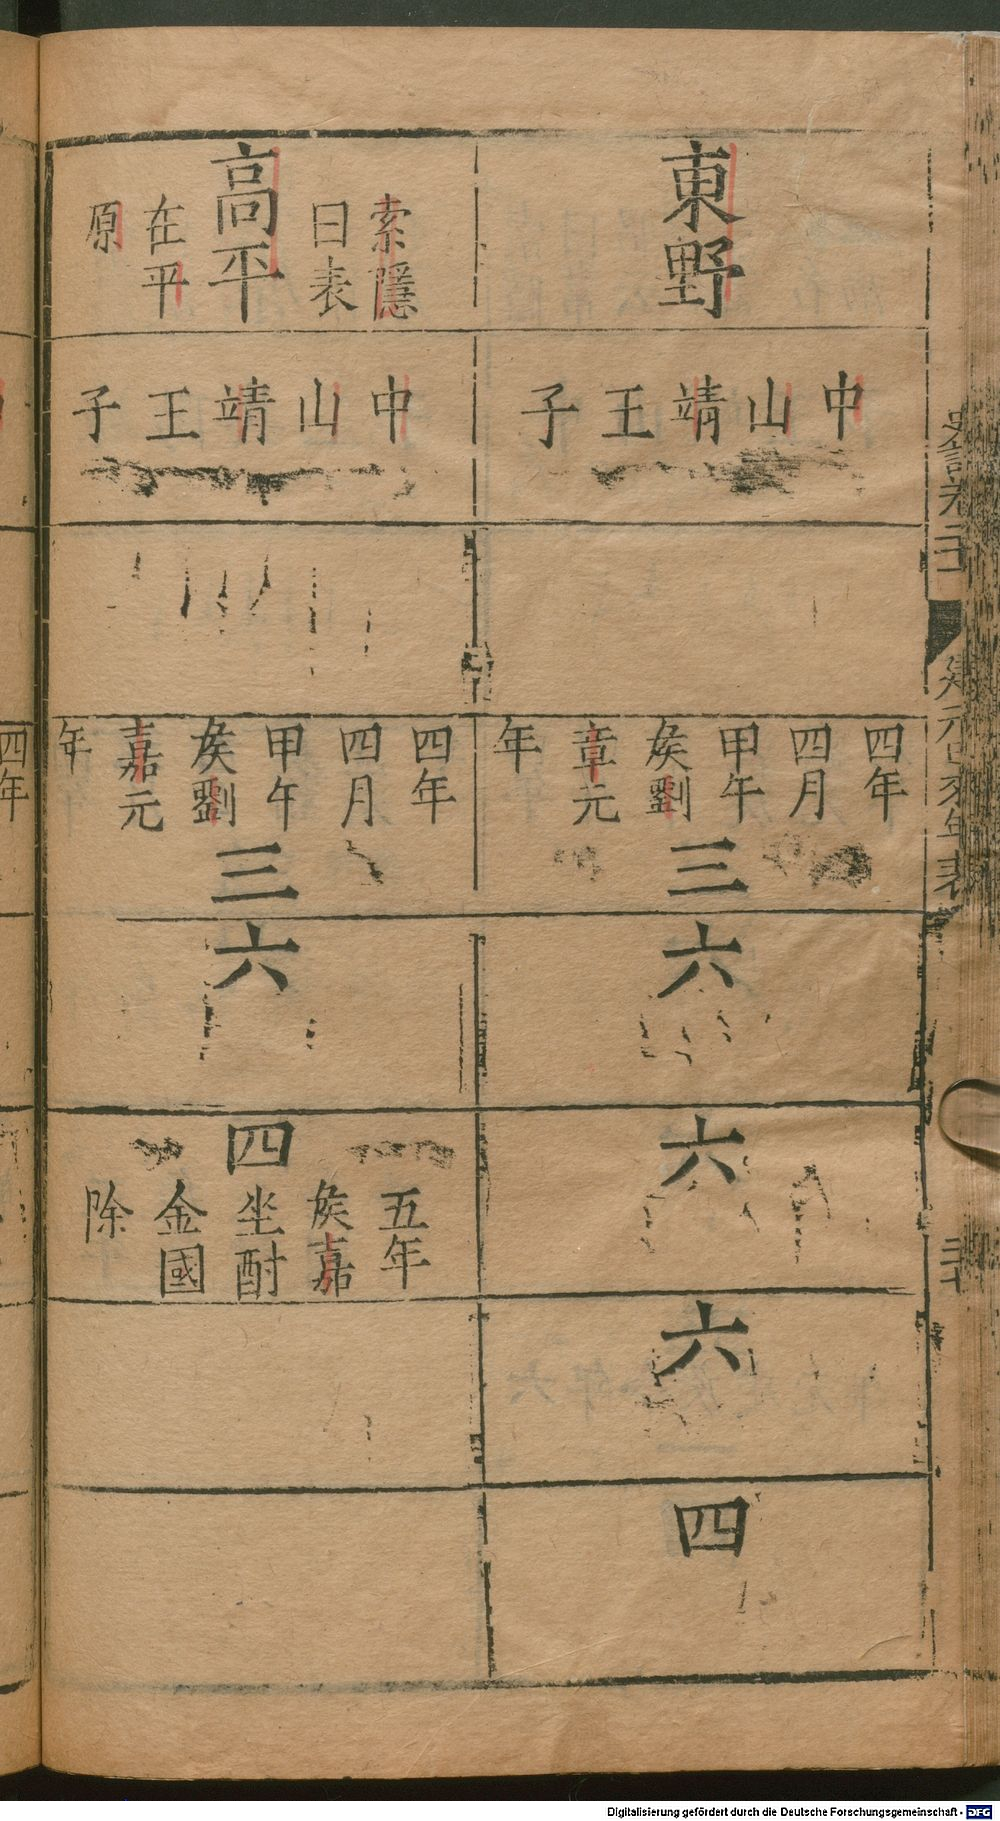 東野
中山靖王子
四年
四月
甲午
侯劉
章元
年
三
六
六
六
四
高平
索隱
曰表
在平
原
中山靖王子
四年
四月
甲午
侯劉
嘉元
年
三
六
四
五年
侯嘉
坐酎
金國
除
四年
Digitalisierung gefördert durch die Deutsche Forschungsgemeinschaft - DFG